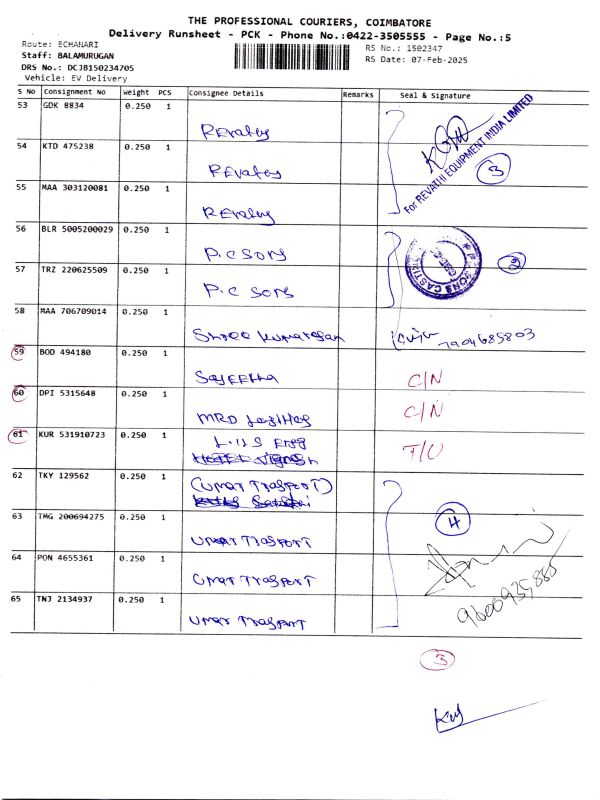 THE PROFESSIONAL COURIERS, COIMBATORE
Delivery Runsheet - PCK - Phone No.:0422-3505555 - Page No.:5
Route: ECHANARI
RS No.: 1502347
Staff: BALAMURUGAN
RS Date: 07-Feb-2025
DRS No.: DCJB150234705
Vehicle: EV Delivery
S No Consignment No Weight PCS Consignee Details Remarks Seal & Signature
53 GDK 8834 0.250 1
Revathy
For REVATHI EQUIPMENT INDIA LIMITED
54 KTD 475238 0.250 1
Revathy
3
55 MAA 303120081 0.250 1
Revathy
56 BLR 5005200029 0.250 1
P.C Sons
2
57 TRZ 220625509 0.250 1
P.C Sons
58 MAA 706709014 0.250 1
Shree Kumaragan
7904685803
59 BOD 494180 0.250 1
Sajeetha
C/N
60 DPI 5315648 0.250 1
MRD
C/N
61 KUR 531910723 0.250 1
T/U
62 TKY 129562 0.250 1
(Umar Trasport)
63 TMG 200694275 0.250 1
4
Umar Trasport
64 PON 4655361 0.250 1
Umar Trasport
65 TNJ 2134937 0.250 1
Umar Trasport
3